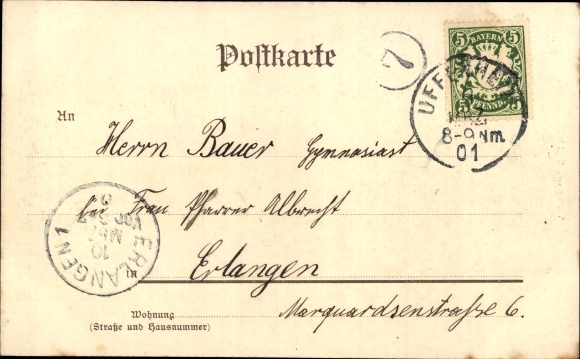 Postkarte
7
5 BAYERN 5
PFENNIG
UFFENHEIM
MRZ
8-9 Nm.
01
An
Herrn Bauer Gymnasiast
bei Frau Pfarrer Albrecht
in Erlangen
Marquardsenstraße 6.
Wohnung
(Straße und Hausnummer)
ERLANGEN 1
10
MRZ
VOR